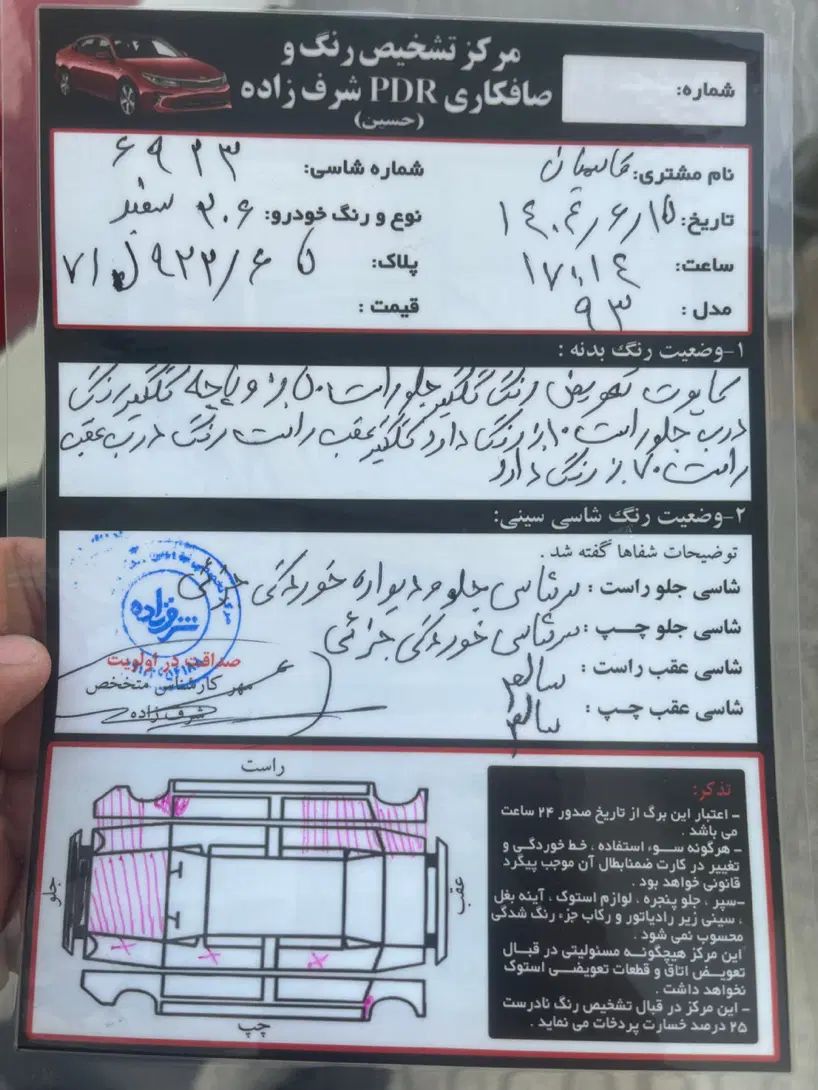 مرکز تشخیص رنگ و
صافکاری PDR شرف زاده
(حسین)
شماره:
نام مشتری:
شماره شاسی: ۶۹۲۳
تاریخ: ۱۴۰۴/۶/۱۵
نوع و رنگ خودرو: ۲۰۶ سفید
ساعت: ۱۷:۱۴
پلاک:
مدل: ۹۳
قیمت:
۱-وضعیت رنگ بدنه:
کاپوت تعویض رنگ گلگیر جلو راست ۵۰٪ و پاچه گلگیر رنگ
درب جلو راست ۱۰٪ رنگ دارد گلگیر عقب راست رنگ درب عقب
راست ۷۰٪ رنگ دارد
۲-وضعیت رنگ شاسی سینی:
توضیحات شفاها گفته شد.
شاسی جلو راست: سرشاسی جلو و دیواره خوردگی جزئی
شاسی جلو چپ: سرشاسی خوردگی جزئی
شاسی عقب راست: سالم
شاسی عقب چپ: سالم
شرف زاده
صداقت در اولویت
مهر کارشناس متخخص
شرف زاده
راست
جلو
عقب
چپ
تذکر:
- اعتبار این برگ از تاریخ صدور ۲۴ ساعت
می باشد.
- هرگونه سوء استفاده، خط خوردگی و
تغییر در کارت ضمنابطال آن موجب پیگرد
قانونی خواهد بود.
-سپر، جلو پنجره، لوازم استوک، آینه بغل
، سینی زیر رادیاتور و رکاب جزء رنگ شدگی
محسوب نمی شود.
این مرکز هیچگونه مسئولیتی در قبال
تعویض اتاق و قطعات تعویضی استوک
نخواهد داشت.
- این مرکز در قبال تشخیص رنگ نادرست
۲۵ درصد خسارت پرداخت می نماید.